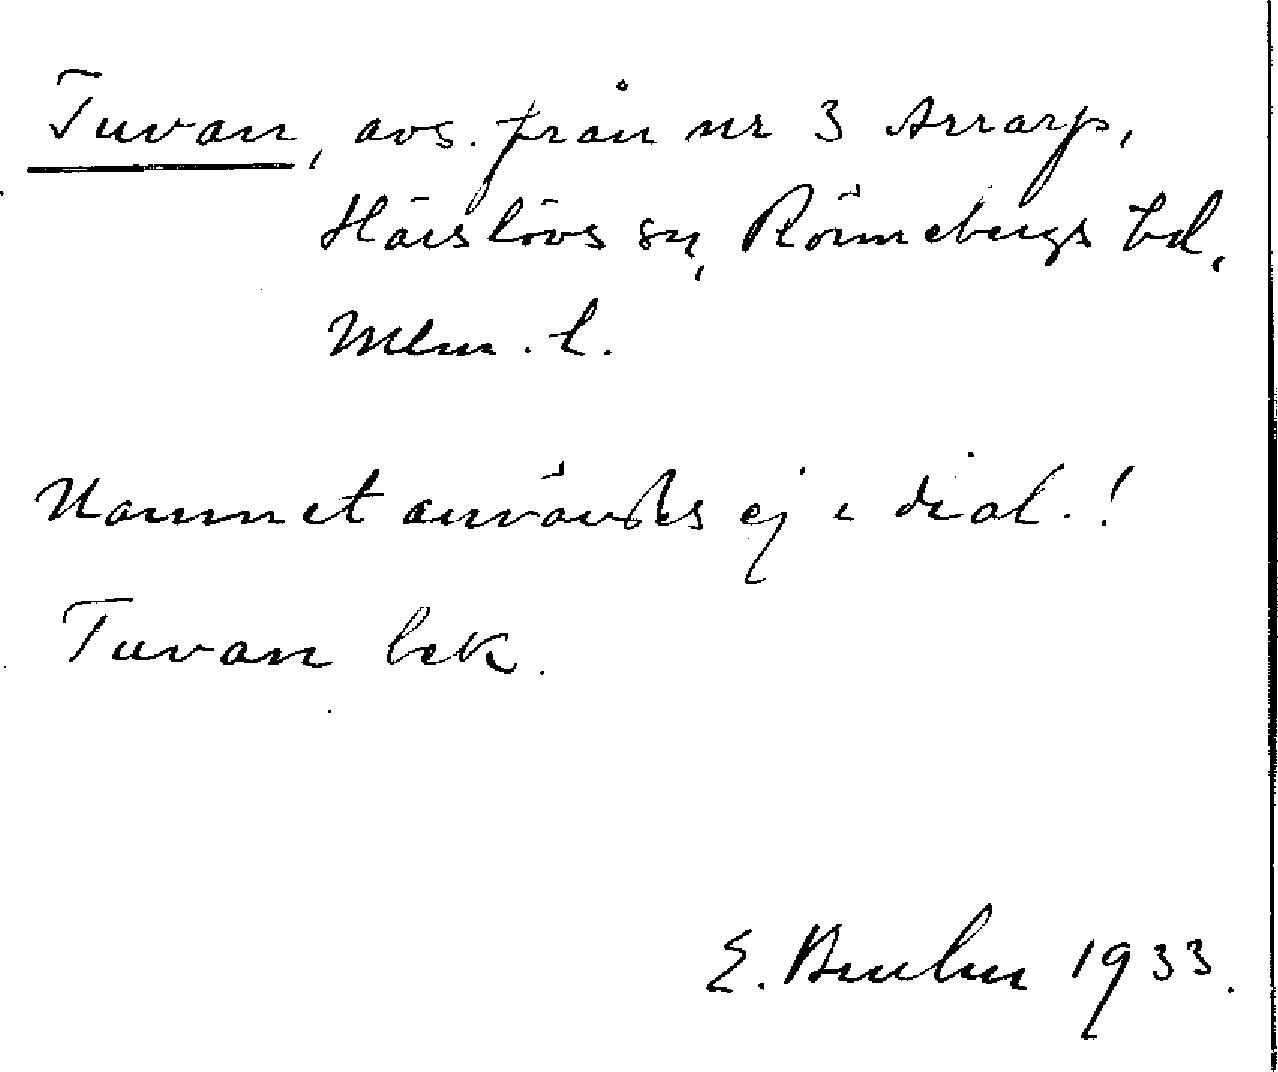 Tuvan, avs. från nr 3 Arrarp,
Härslövs sn, Rönnebergs hd,
Mlm. l.
Namnet användes ej i dial.!
Tuvan bek.
E. 1933.